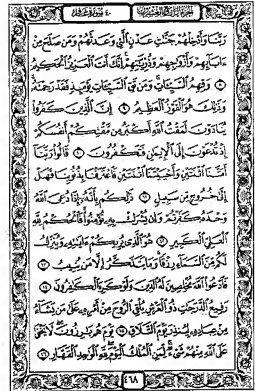 الجزء الرابع والعشرون ٤٠ سورة غافر
رَبَّنَا وَأَدْخِلْهُمْ جَنَّٰتِ عَدْنٍ ٱلَّتِى وَعَدتَّهُمْ وَمَن صَلَحَ مِنْ
ءَابَآئِهِمْ وَأَزْوَٰجِهِمْ وَذُرِّيَّٰتِهِمْ إِنَّكَ أَنتَ ٱلْعَزِيزُ ٱلْحَكِيمُ
٨ وَقِهِمُ ٱلسَّيِّـَٔاتِ وَمَن تَقِ ٱلسَّيِّـَٔاتِ يَوْمَئِذٍ فَقَدْ رَحِمْتَهُۥ
وَذَٰلِكَ هُوَ ٱلْفَوْزُ ٱلْعَظِيمُ ٩ إِنَّ ٱلَّذِينَ كَفَرُوا۟
يُنَادَوْنَ لَمَقْتُ ٱللَّهِ أَكْبَرُ مِن مَّقْتِكُمْ أَنفُسَكُمْ
إِذْ تُدْعَوْنَ إِلَى ٱلْإِيمَٰنِ فَتَكْفُرُونَ ١٠ قَالُوا۟ رَبَّنَآ
أَمَتَّنَا ٱثْنَتَيْنِ وَأَحْيَيْتَنَا ٱثْنَتَيْنِ فَٱعْتَرَفْنَا بِذُنُوبِنَا فَهَلْ
إِلَىٰ خُرُوجٍ مِّن سَبِيلٍ ١١ ذَٰلِكُم بِأَنَّهُۥٓ إِذَا دُعِىَ ٱللَّهُ
وَحْدَهُۥ كَفَرْتُمْ وَإِن يُشْرَكْ بِهِۦ تُؤْمِنُوا۟ فَٱلْحُكْمُ لِلَّهِ
ٱلْعَلِىِّ ٱلْكَبِيرِ ١٢ هُوَ ٱلَّذِى يُرِيكُمْ ءَايَٰتِهِۦ وَيُنَزِّلُ
لَكُم مِّنَ ٱلسَّمَآءِ رِزْقًا وَمَا يَتَذَكَّرُ إِلَّا مَن يُنِيبُ ١٣
فَٱدْعُوا۟ ٱللَّهَ مُخْلِصِينَ لَهُ ٱلدِّينَ وَلَوْ كَرِهَ ٱلْكَٰفِرُونَ ١٤
رَفِيعُ ٱلدَّرَجَٰتِ ذُو ٱلْعَرْشِ يُلْقِى ٱلرُّوحَ مِنْ أَمْرِهِۦ عَلَىٰ مَن يَشَآءُ
مِنْ عِبَادِهِۦ لِيُنذِرَ يَوْمَ ٱلتَّلَاقِ ١٥ يَوْمَ هُم بَٰرِزُونَ لَا يَخْفَىٰ
عَلَى ٱللَّهِ مِنْهُمْ شَىْءٌ لِّمَنِ ٱلْمُلْكُ ٱلْيَوْمَ لِلَّهِ ٱلْوَٰحِدِ ٱلْقَهَّارِ ١٦
٤٦٨